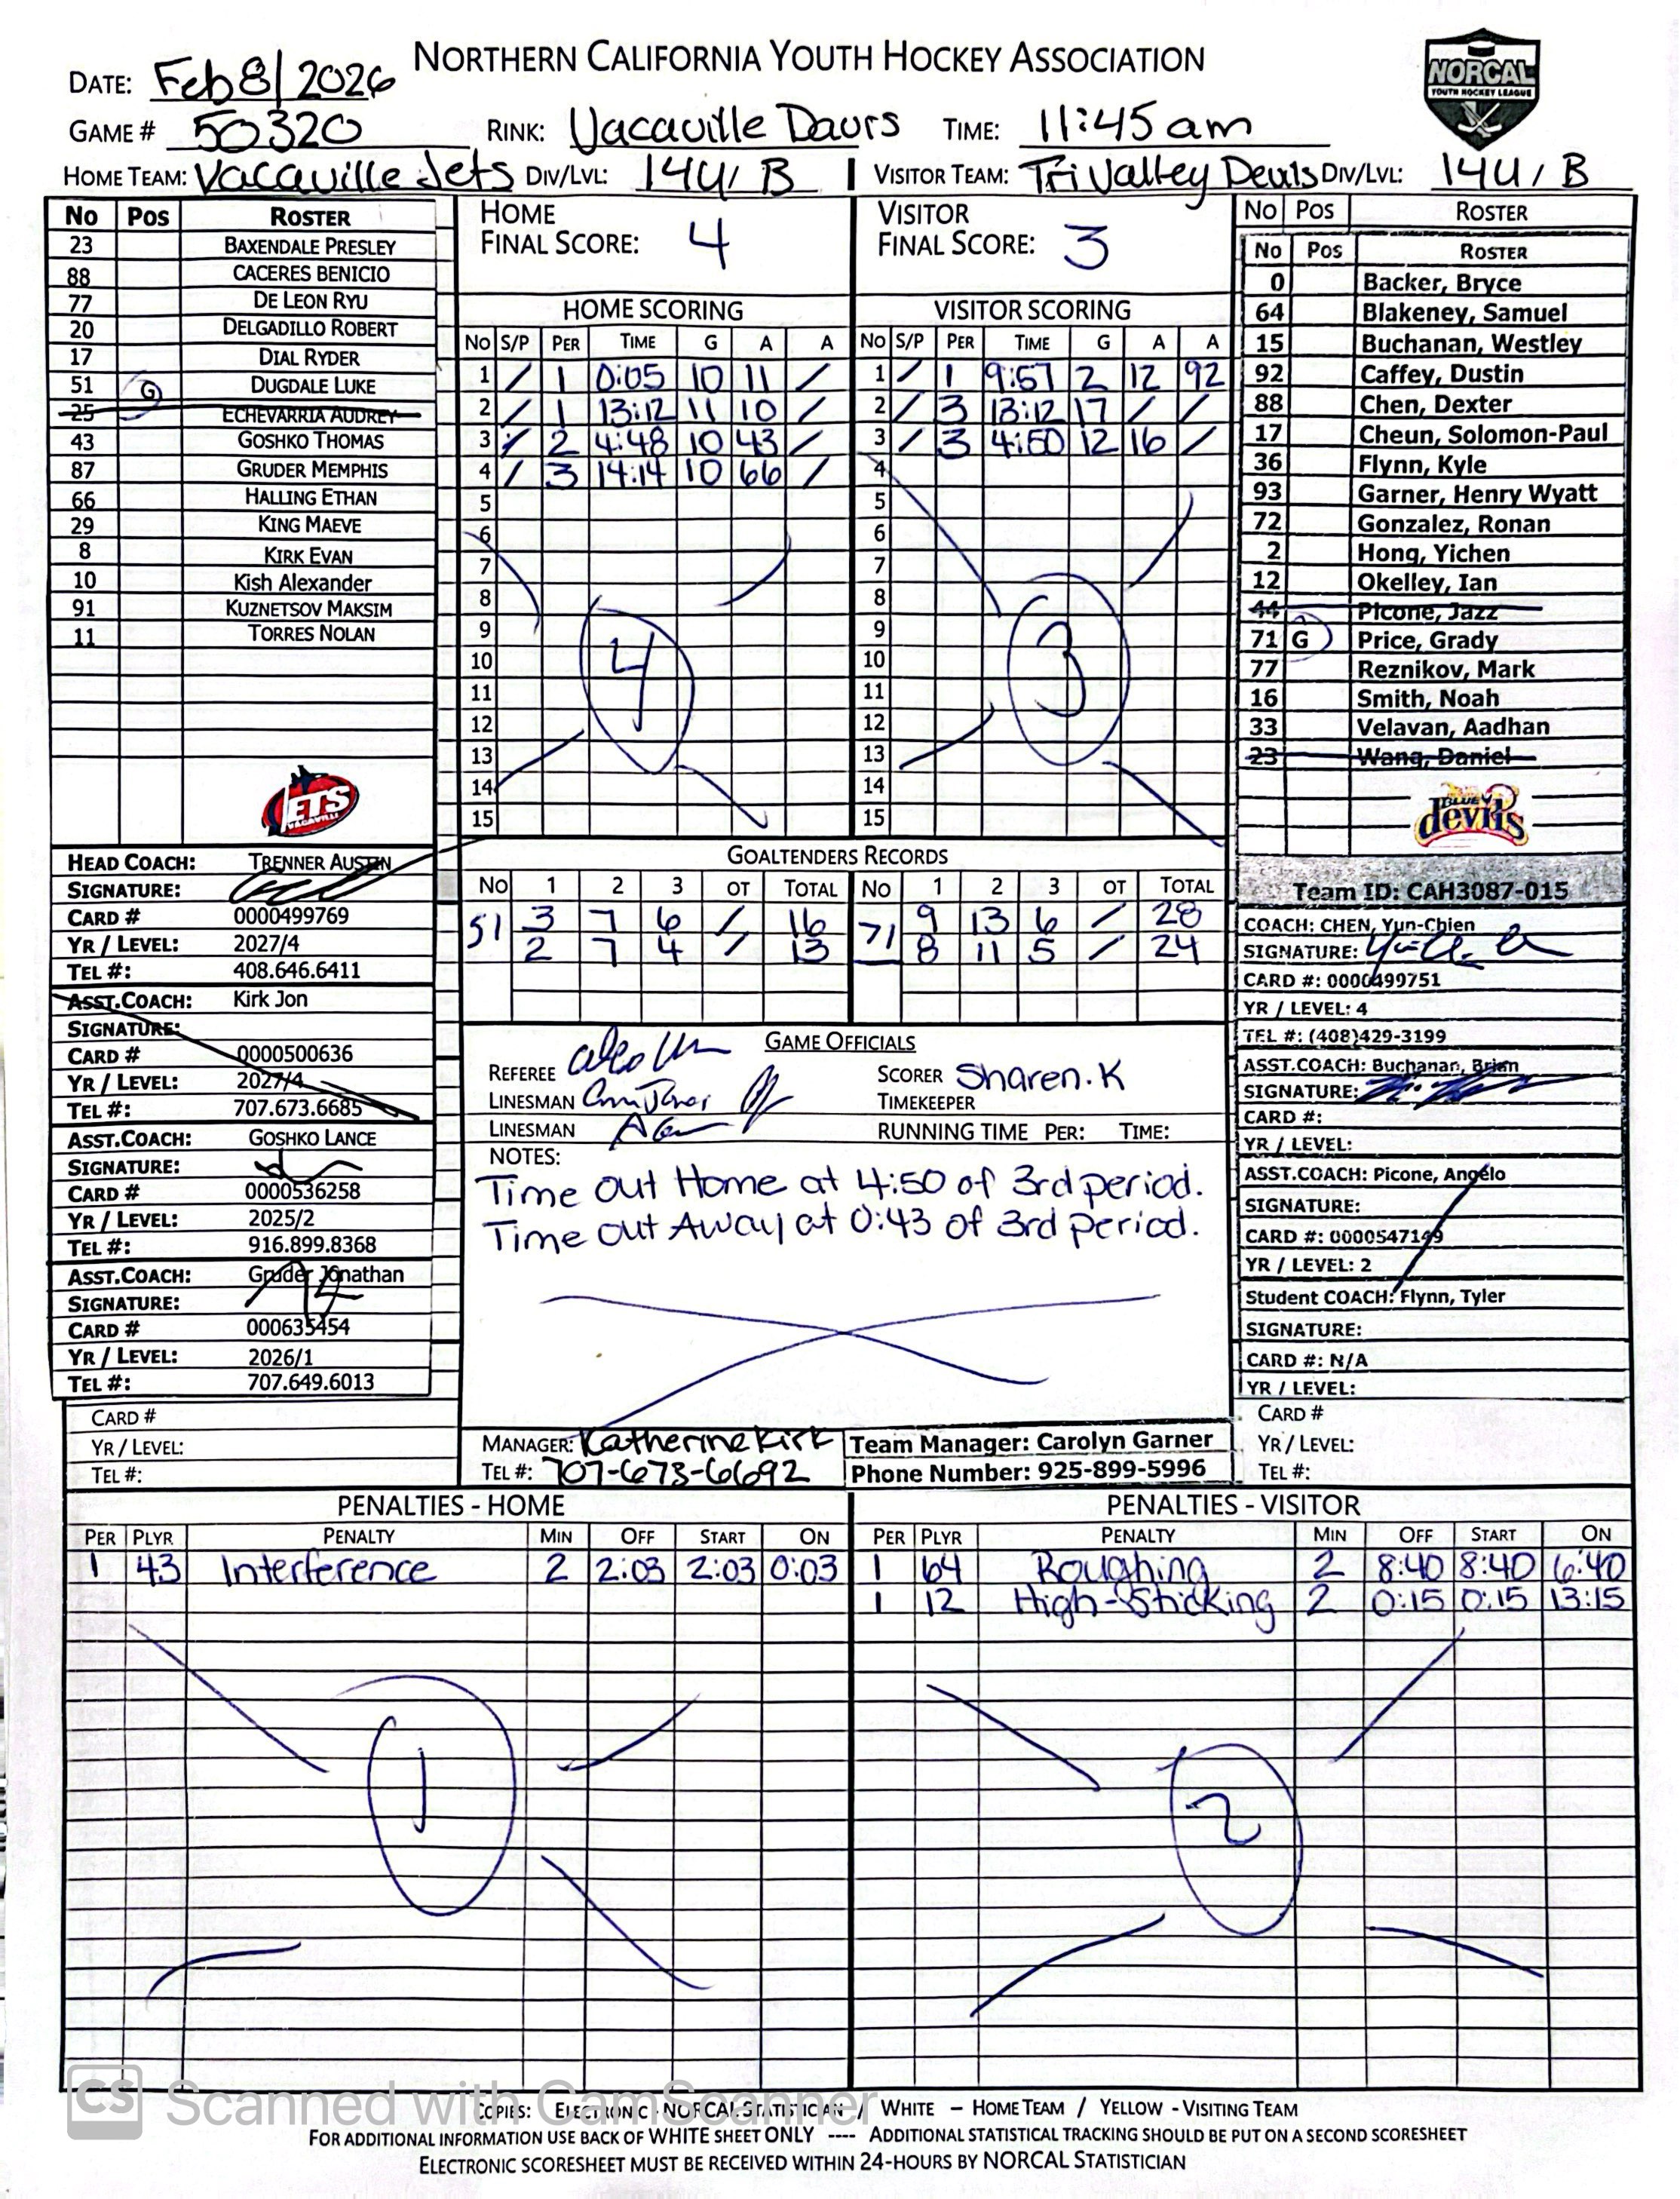 NORTHERN CALIFORNIA YOUTH HOCKEY ASSOCIATION
NORCAL
YOUTH HOCKEY LEAGUE
DATE: Feb 8/2026
GAME # 50320 RINK: Vacaville Davrs TIME: 11:45 am
HOME TEAM: Vacaville Jets DIV/LVL: 14U/B VISITOR TEAM: Tri Valley Devils DIV/LVL: 14U/B
No Pos ROSTER
23 BAXENDALE PRESLEY
88 CACERES BENICIO
77 DE LEON RYU
20 DELGADILLO ROBERT
17 DIAL RYDER
51 G DUGDALE LUKE
25 ECHEVARRIA AUDREY
43 GOSHKO THOMAS
87 GRUDER MEMPHIS
66 HALLING ETHAN
29 KING MAEVE
8 KIRK EVAN
10 Kish Alexander
91 KUZNETSOV MAKSIM
11 TORRES NOLAN
JETS
VACAVILLE
HOME
FINAL SCORE: 4
HOME SCORING
No S/P PER TIME G A A
1 / 1 0:05 10 11 /
2 / 1 13:12 11 10 /
3 / 2 4:48 10 43 /
4 / 3 14:14 10 66 /
5
6
7
8
9
10
11
12
13
14
15
4
VISITOR
FINAL SCORE: 3
VISITOR SCORING
No S/P PER TIME G A A
1 / 1 9:57 2 12 92
2 / 3 13:12 17 / /
3 / 3 4:50 12 16 /
4
5
6
7
8
9
10
11
12
13
14
15
3
No Pos ROSTER
No Pos ROSTER
0 Backer, Bryce
64 Blakeney, Samuel
15 Buchanan, Westley
92 Caffey, Dustin
88 Chen, Dexter
17 Cheun, Solomon-Paul
36 Flynn, Kyle
93 Garner, Henry Wyatt
72 Gonzalez, Ronan
2 Hong, Yichen
12 Okelley, Ian
44 Picone, Jazz
71 G Price, Grady
77 Reznikov, Mark
16 Smith, Noah
33 Velavan, Aadhan
23 Wang, Daniel
BLUE
devils
HEAD COACH: TRENNER AUSTIN
SIGNATURE:
CARD # 0000499769
YR / LEVEL: 2027/4
TEL #: 408.646.6411
ASST.COACH: Kirk Jon
SIGNATURE:
CARD # 0000500636
YR / LEVEL: 2027/4
TEL #: 707.673.6685
ASST.COACH: GOSHKO LANCE
SIGNATURE:
CARD # 0000536258
YR / LEVEL: 2025/2
TEL #: 916.899.8368
ASST.COACH: Gruder Jonathan
SIGNATURE:
CARD # 000635454
YR / LEVEL: 2026/1
TEL #: 707.649.6013
CARD #
YR / LEVEL:
TEL #:
GOALTENDERS RECORDS
No 1 2 3 OT TOTAL No 1 2 3 OT TOTAL
51 3 7 6 / 16 71 9 13 6 / 28
2 7 4 / 13 8 11 5 / 24
GAME OFFICIALS
REFEREE
LINESMAN
LINESMAN
SCORER Sharen.K
TIMEKEEPER
RUNNING TIME PER: TIME:
NOTES:
Time out Home at 4:50 of 3rd period.
Time out Away at 0:43 of 3rd period.
MANAGER: Katherine Kirk
TEL #: 707-673-6692
Team Manager: Carolyn Garner
Phone Number: 925-899-5996
Team ID: CAH3087-015
COACH: CHEN, Yun-Chien
SIGNATURE:
CARD #: 0000499751
YR / LEVEL: 4
TEL #: (408)429-3199
ASST.COACH: Buchanan, Brian
SIGNATURE:
CARD #:
YR / LEVEL:
ASST.COACH: Picone, Angelo
SIGNATURE:
CARD #: 0000547149
YR / LEVEL: 2
Student COACH: Flynn, Tyler
SIGNATURE:
CARD #: N/A
YR / LEVEL:
CARD #
YR / LEVEL:
TEL #:
PENALTIES - HOME
PER PLYR PENALTY MIN OFF START ON
1 43 Interference 2 2:03 2:03 0:03
1
PENALTIES - VISITOR
PER PLYR PENALTY MIN OFF START ON
1 64 Roughing 2 8:40 8:40 6:40
1 12 High-Sticking 2 0:15 0:15 13:15
2
CS Scanned with CamScanner
COPIES: ELECTRONIC - NORCAL STATISTICIAN / WHITE – HOME TEAM / YELLOW - VISITING TEAM
FOR ADDITIONAL INFORMATION USE BACK OF WHITE SHEET ONLY ---- ADDITIONAL STATISTICAL TRACKING SHOULD BE PUT ON A SECOND SCORESHEET
ELECTRONIC SCORESHEET MUST BE RECEIVED WITHIN 24-HOURS BY NORCAL STATISTICIAN